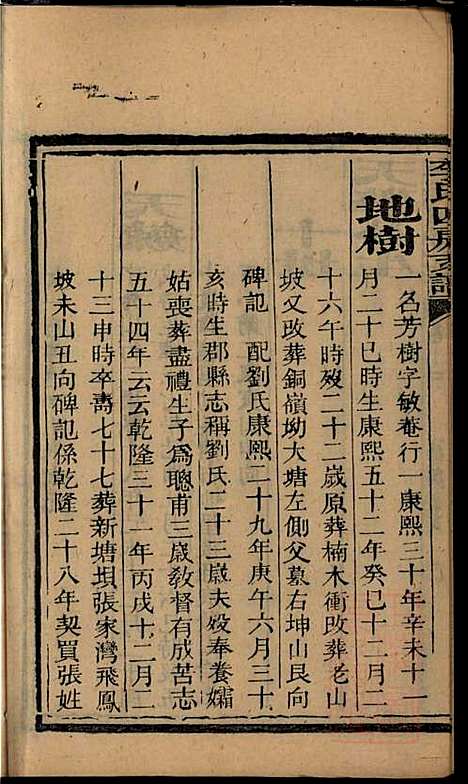 李氏四房支譜
地樹
一名芳樹字敏菴行一康熙三十年辛未十一
月二十巳時生康熙五十二年癸巳十二月二
十六午時歿二十二歲原葬楠木衝改葬老山
坡又改葬銅嶺坳大塘左側父墓右坤山艮向
碑記　配劉氏康熙二十九年庚午六月三十
亥時生郡縣志稱劉氏二十三歲夫歿奉養孀
姑喪葬盡禮生子爲聰甫三歲敎督有成苦志
五十四年云云乾隆三十一年丙戌十二月二
十三申時卒壽七十七葬新塘垻張家灣飛鳳
坡未山丑向碑記係乾隆二十八年契買張姓